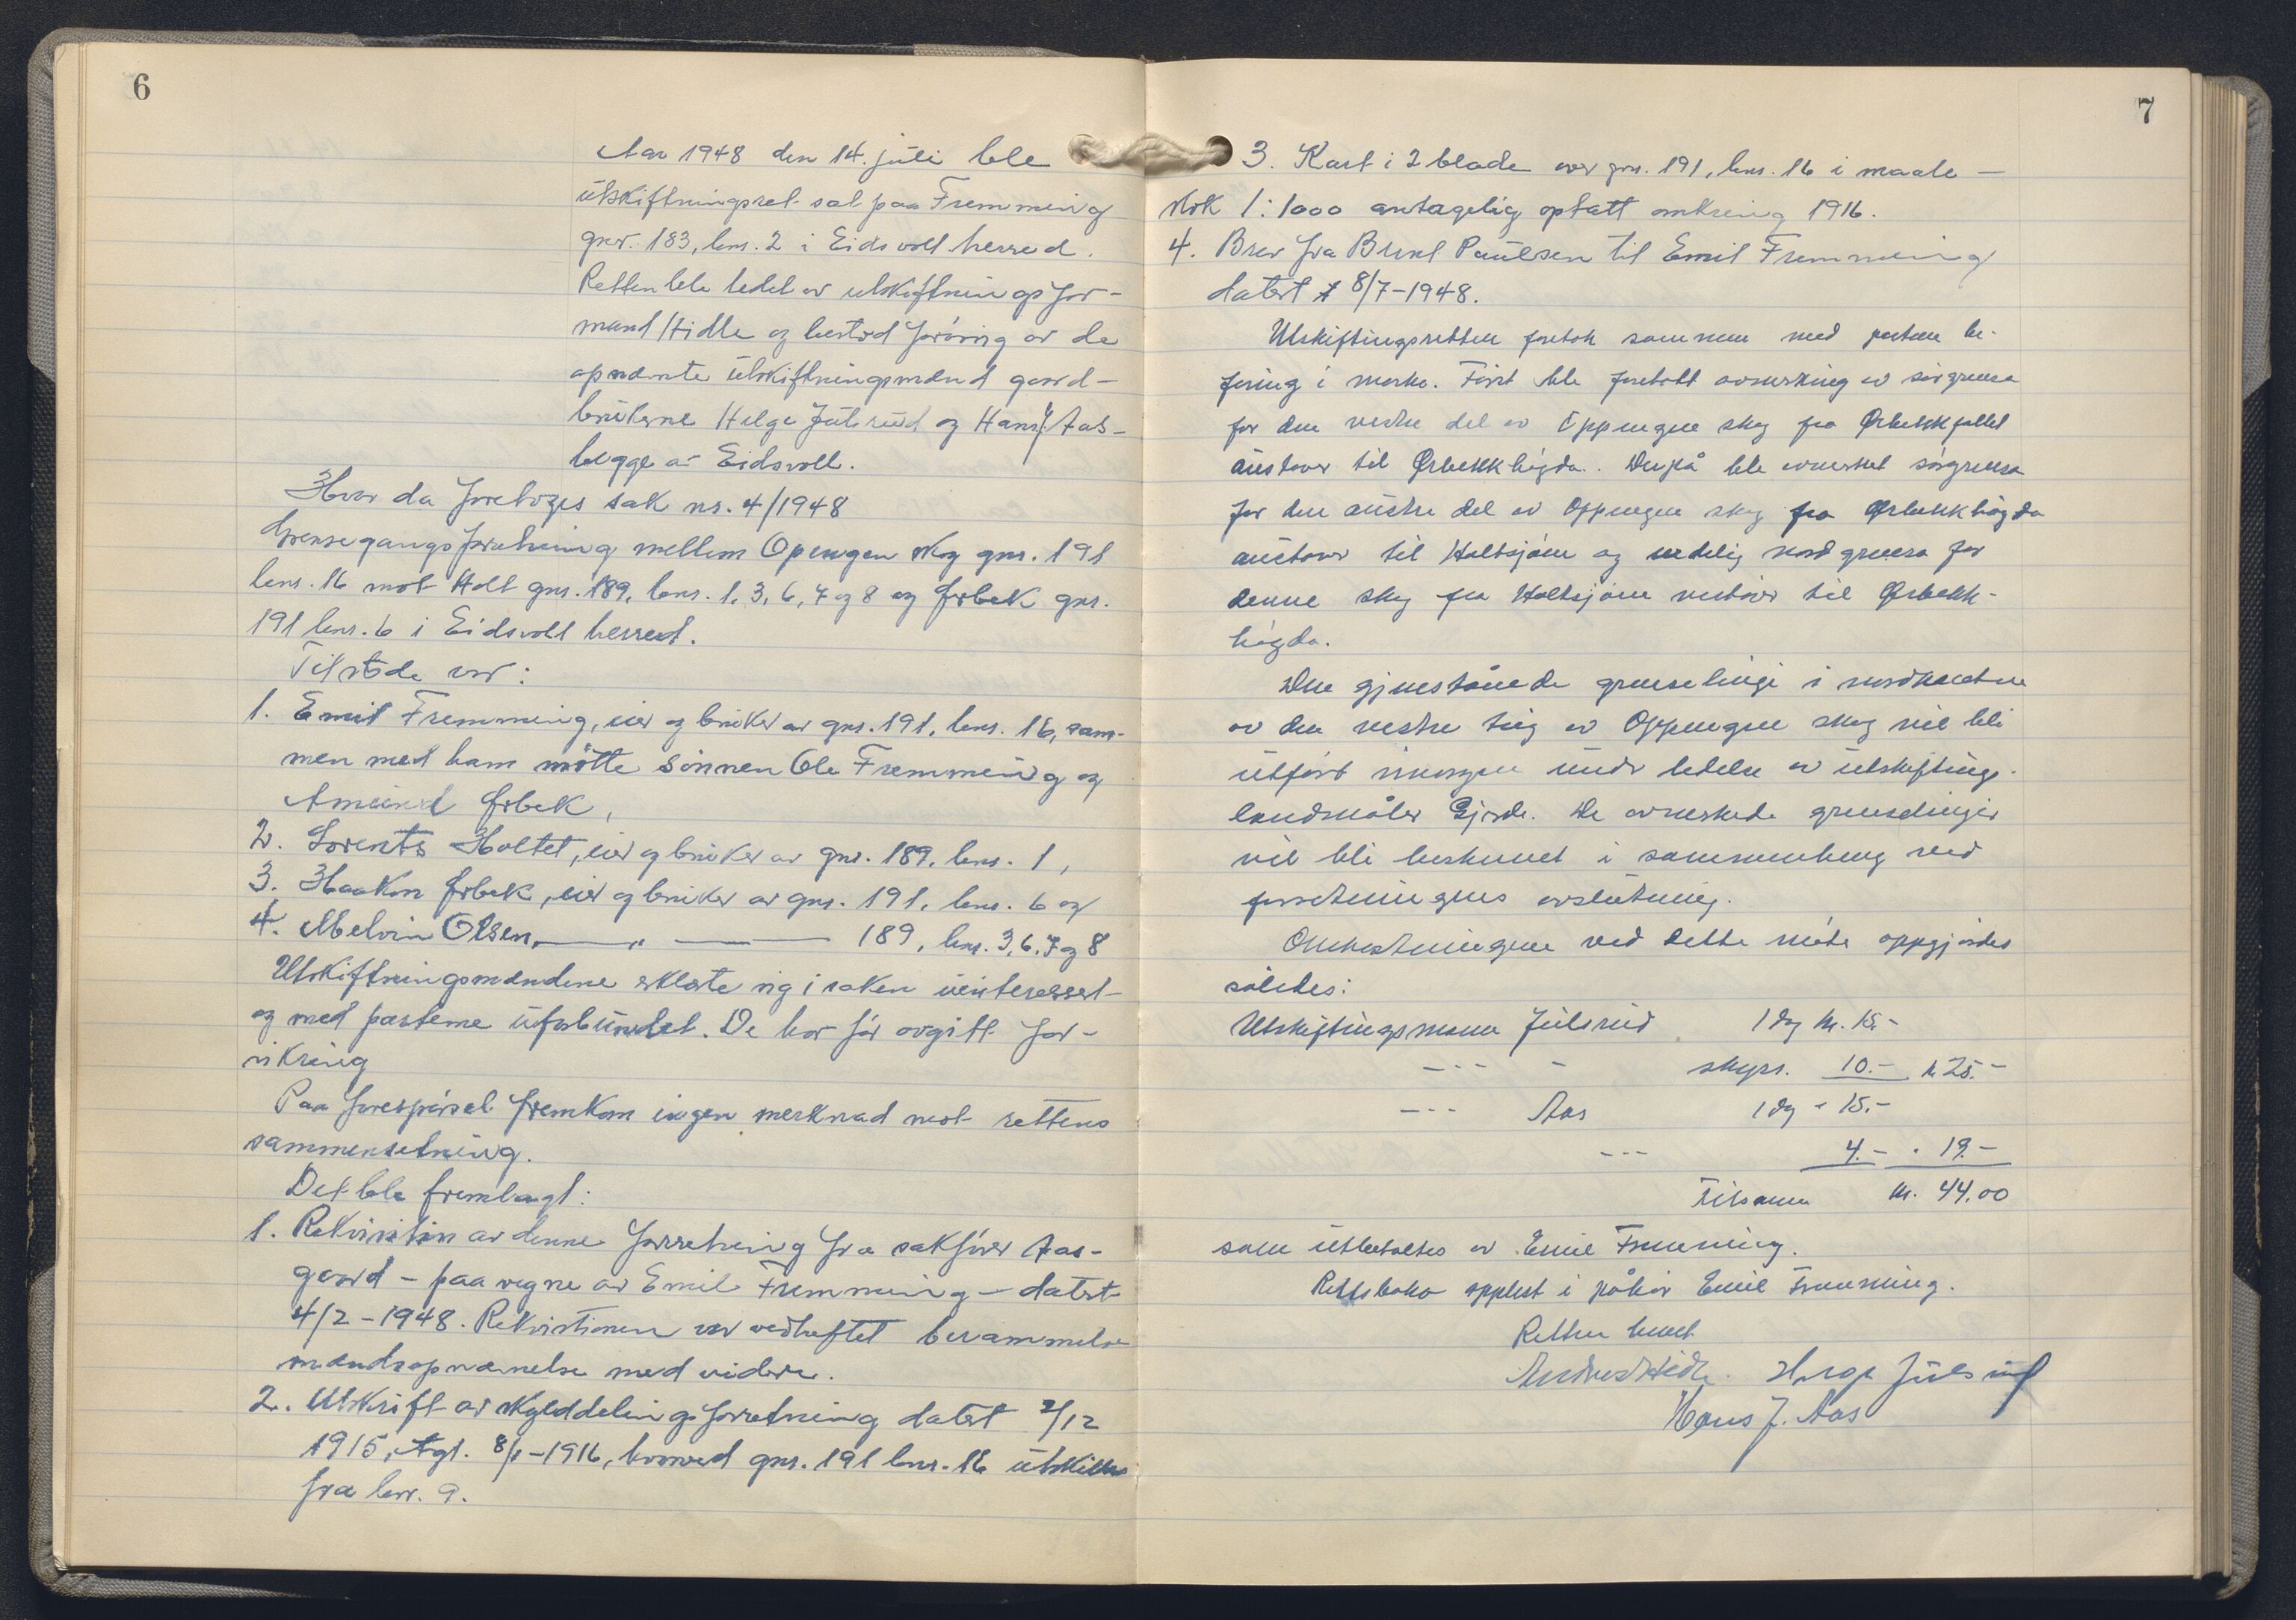 6
Aar 1948 den 14. juli ble
utskiftningsret sat paa Fremming
gnr. 183, bnr. 2 i Eidsvoll herred.
Retten ble ledet av utskiftningsfor-
mand Hidle og bestod forøvrig av de
opnævnte utskiftningsmænd gaard-
brukerne Helge Julsrud og Hans J. Aas -
begge av Eidsvoll.
Hvor da foretoges sak nr. 4/1948
Grensegangsforretning mellem Opengen skog gnr. 191
bnr. 16 mot Holt gnr. 189, bnr. 1, 3, 6, 7 og 8 og Ørbek gnr.
191 bnr. 6 i Eidsvoll herred.
Tilstede var:
1. Emil Fremming, eier og bruker av gnr. 191, bnr. 16, sam-
men med ham møtte sønnen Ole Fremming og
Amund Ørbek,
2. Lorents Holtet, eier og bruker av gnr. 189, bnr. 1,
3. Haakon Ørbek, eier og bruker av gnr. 191, bnr. 6 og
4. Melvin Olsen, — " — 189, bnr. 3, 6, 7 og 8
Utskiftningsmændene erklærte sig i saken uinteressert
og med parterne uforbundet. De har før avgitt for-
sikring
Paa forespørsel fremkom ingen merknad mot rettens
sammensetning.
Det ble fremlagt:
1. Rekvisition av denne forretning fra sakfører Aas-
gaard - paa vegne av Emil Fremming - datert
4/2 - 1948. Rekvisitionen var vedheftet berammelse
mændsopnævnelse med videre.
2. Utskrift av skylddelingsforretning datert 2/12
1915, tgl. 8/1 - 1916, hvorved gnr. 191 bnr. 16 utskiltes
fra bnr. 9.
7
3. Kart i 2 blade over gnr. 191, bnr. 16 i maale-
stok 1:1000 antagelig optatt omkring 1916.
4. Brev fra Paulsen til Emil Fremming
datert 8/7 - 1948.
Utskiftingsretten foretok sammen med partene be-
faring i marka. Først ble foretatt avmerking av sørgrensa
for den vestre del av Oppengen skog fra Ørbekkfallet
austover til Ørbekkhøgda. Derpå ble avmerket sørgrensa
for den austre del av Oppengen skog fra Ørbekkhøgda
austover til Holtsjøen og endelig nordgrensa for
denne skog fra Holtsjøen vestover til Ørbekk-
høgda.
Den gjenstående grenselinje i nordkanten
av den vestre teig av Oppengen skog vil bli
utført imorgen under ledelse av utskiftings-
landmåler Gjerde. De avmerkede grenselinjer
vil bli beskrevet i sammenheng ved
forretningens avslutning.
Omkostningene ved dette møte oppgjordes
således:
Utskiftingsmann Julsrud 1 dg kr. 15.-
- - - - skyss. 10.- kr 25.-
- - - Aas 1 dg " 15.-
- - - 4.- " 19.-
Tilsamen kr. 44.00
som utbetaltes av Emil Fremming.
Rettsboka opplest i påhør Emil Fremming.
Retten hevet
Andreas Hidle. Helge Julsrud
Hans J. Aas